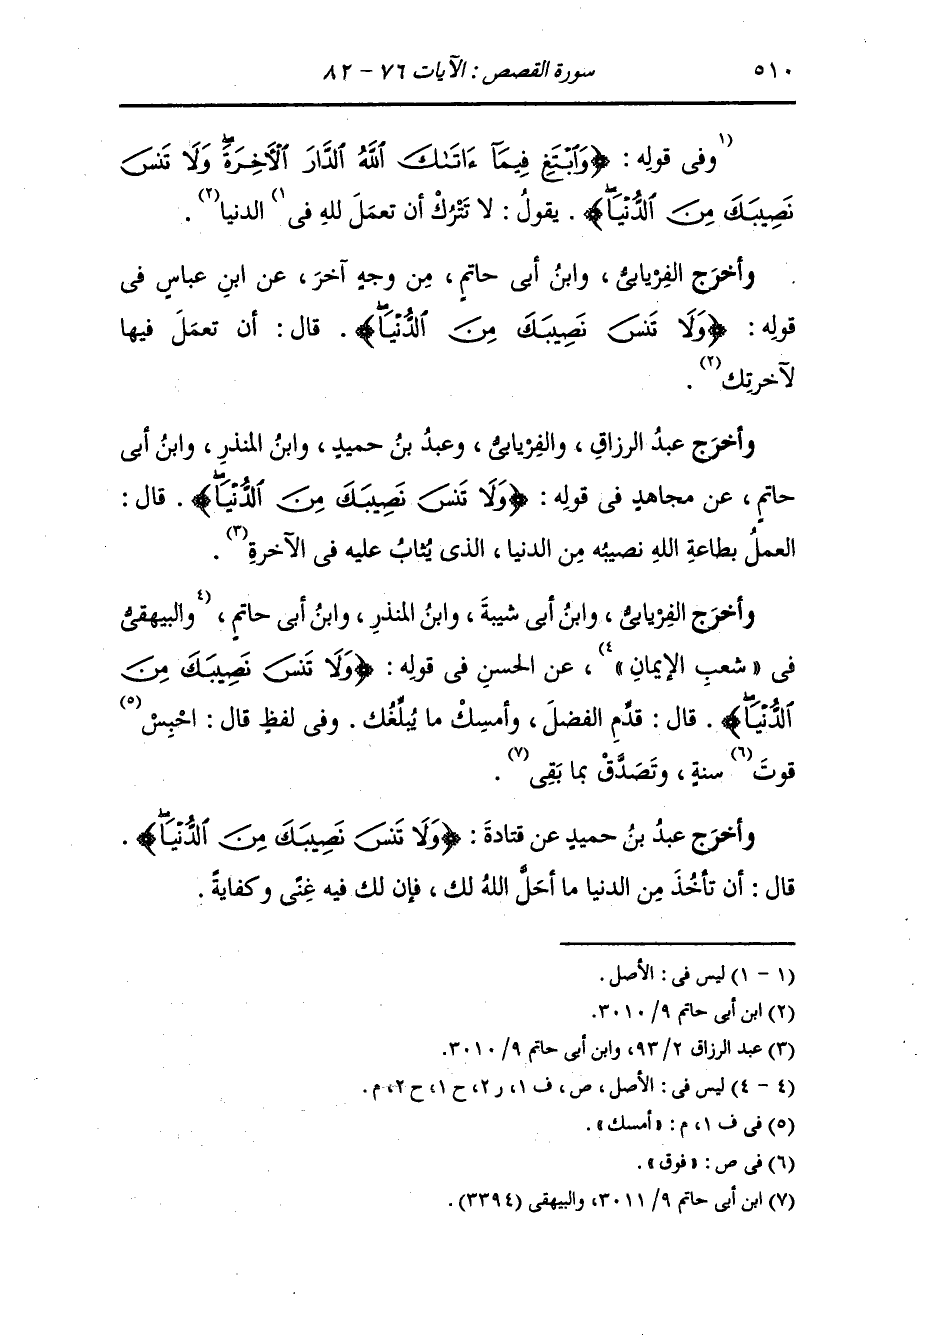 ٥١٠ سورة القصص : الآيات ٧٦ - ٨٢
(١وفى قولِه : ﴿وَٱبْتَغِ فِيمَآ ءَاتَىٰكَ ٱللَّهُ ٱلدَّارَ ٱلْآخِرَةَۖ وَلَا تَنسَ
نَصِيبَكَ مِنَ ٱلدُّنْيَاۖ﴾ . يقولُ : لا تَتْرُكْ أن تعمَلَ للهِ فى١) الدنيا(٢) .
وأخرَج الفِرْيابىُّ ، وابنُ أبى حاتمٍ ، مِن وجهٍ آخرَ ، عن ابنِ عباسٍ فى
قولِه : ﴿وَلَا تَنسَ نَصِيبَكَ مِنَ ٱلدُّنْيَاۖ﴾ . قال : أن تعمَلَ فيها
لآخرتِك(٢) .
وأخرَج عبدُ الرزاقِ ، والفِرْيابىُّ ، وعبدُ بنُ حميدٍ ، وابنُ المنذرِ ، وابنُ أبى
حاتمٍ ، عن مجاهدٍ فى قولِه : ﴿وَلَا تَنسَ نَصِيبَكَ مِنَ ٱلدُّنْيَاۖ﴾ . قال :
العملُ بطاعةِ اللهِ نصيبُه مِن الدنيا ، الذى يُثابُ عليه فى الآخرةِ(٣) .
وأخرَج الفِرْيابىُّ ، وابنُ أبى شيبةَ ، وابنُ المنذرِ ، وابنُ أبى حاتمٍ ، (٤والبيهقىُّ
فى « شعبِ الإيمانِ »٤) ، عن الحسنِ فى قولِه : ﴿وَلَا تَنسَ نَصِيبَكَ مِنَ
ٱلدُّنْيَاۖ﴾ . قال : قدِّمِ الفضلَ ، وأمسِكْ ما يُبلِّغُك . وفى لفظٍ قال : احْبِسْ(٥)
قوتَ(٦) سنةٍ ، وتَصَدَّقْ بما بَقِى(٧) .
وأخرَج عبدُ بنُ حميدٍ عن قتادةَ : ﴿وَلَا تَنسَ نَصِيبَكَ مِنَ ٱلدُّنْيَاۖ﴾ .
قال : أن تأخُذَ مِن الدنيا ما أحَلَّ اللهُ لك ، فإن لك فيه غِنًى وكفايةً .
(١ - ١) ليس فى : الأصل .
(٢) ابن أبى حاتم ٩/ ٣٠١٠.
(٣) عبد الرزاق ٢/ ٩٣، وابن أبى حاتم ٩/ ٣٠١٠.
(٤ - ٤) ليس فى : الأصل ، ص ، ف ١، ر ٢، ح ١، ح ٢، م .
(٥) فى ف ١، م : «أمسك» .
(٦) فى ص : «فوق» .
(٧) ابن أبى حاتم ٩/ ٣٠١١، والبيهقى (٣٣٩٤) .